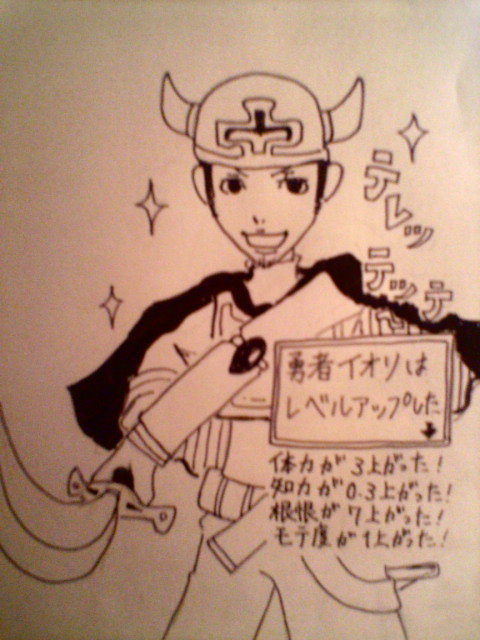 テレッ
テッテ
勇者イオリは
レベルアップした
体力が3上がった!
知力が0.3上がった!
根性が7上がった!
モテ度が1上がった!